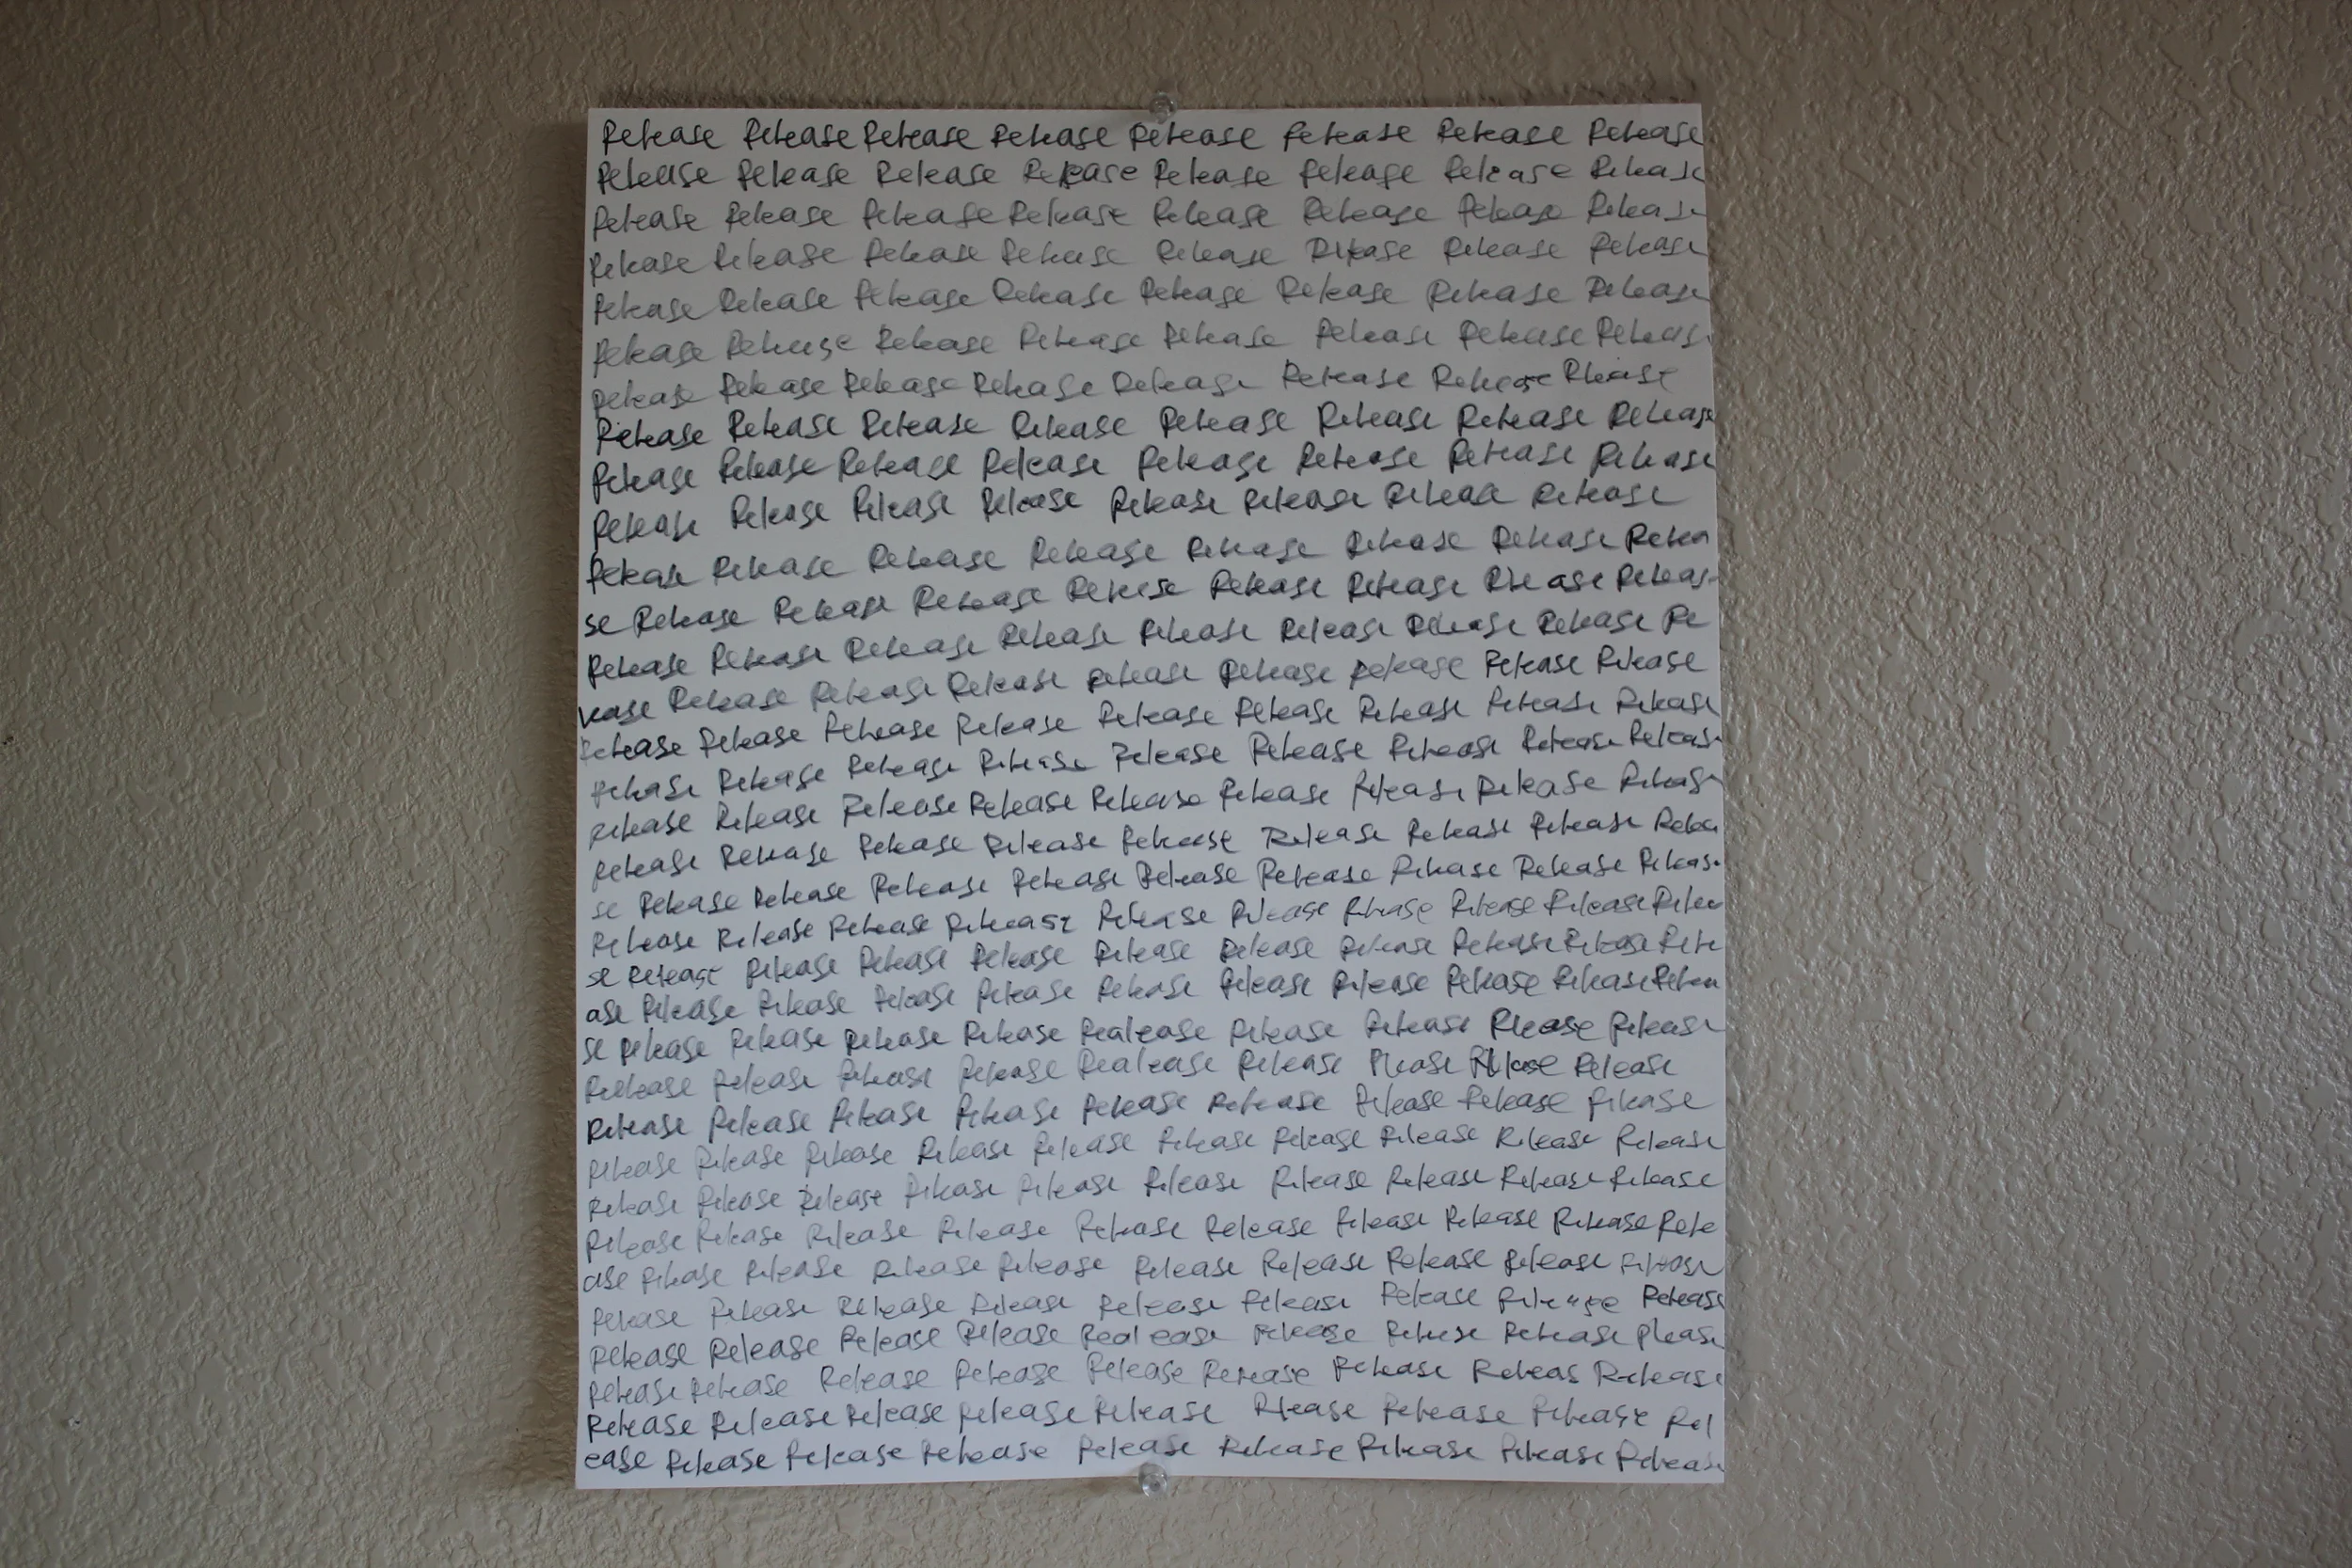 Release Release Release Release Release Release Release Release
Release Release Release Release Release Release Release Release
Release Release Release Release Release Release Release Release
Release Release Release Release Release Release Release Release
Release Release Release Release Release Release Release Release
Release Release Release Release Release Release Release Release
Release Release Release Release Release Release Release Rlease
Release Release Release Release Release Release Release Release
Release Release Release Release Release Release Release Release
Release Release Release Release Release Release Release Release
Release Release Release Release Release Release Release Relea
se Release Release Release Release Release Release Release Release
Release Release Release Release Release Release Release Release Re
lease Release Release Release Release Release Release Release Release
Release Release Release Release Release Release Release Release Release
Release Release Release Release Release Release Release Release Release
Release Release Release Release Release Release Release Release Release
Release Release Release Release Release Release Release Release Relea
se Release Release Release Release Release Release Release Release Release
Release Release Release Release Release Release Release Release Release Relea
se Release Release Release Release Release Release Release Release Release Rele
ase Release Release Release Release Release Release Release Release Release Relea
se Release Release Release Release Realease Release Release Rlease Release
Reelease Release Release Release Realease Release Please Release Release
Release Release Release Release Release Release Release Release Release
Release Release Release Release Release Release Release Release Release Release
Release Release Release Release Release Release Release Release Release Release
Release Release Release Release Release Release Release Release Release Rele
ase Release Release Release Release Release Release Release Release Release
Release Release Release Release Release Release Release Release Release
Release Release Release Release Realease Release Release Release Please
Release Release Release Release Release Release Release Releas Release
Release Release Release Release Release Rlease Release Release Rel
ease Release Release Release Release Release Release Release Release